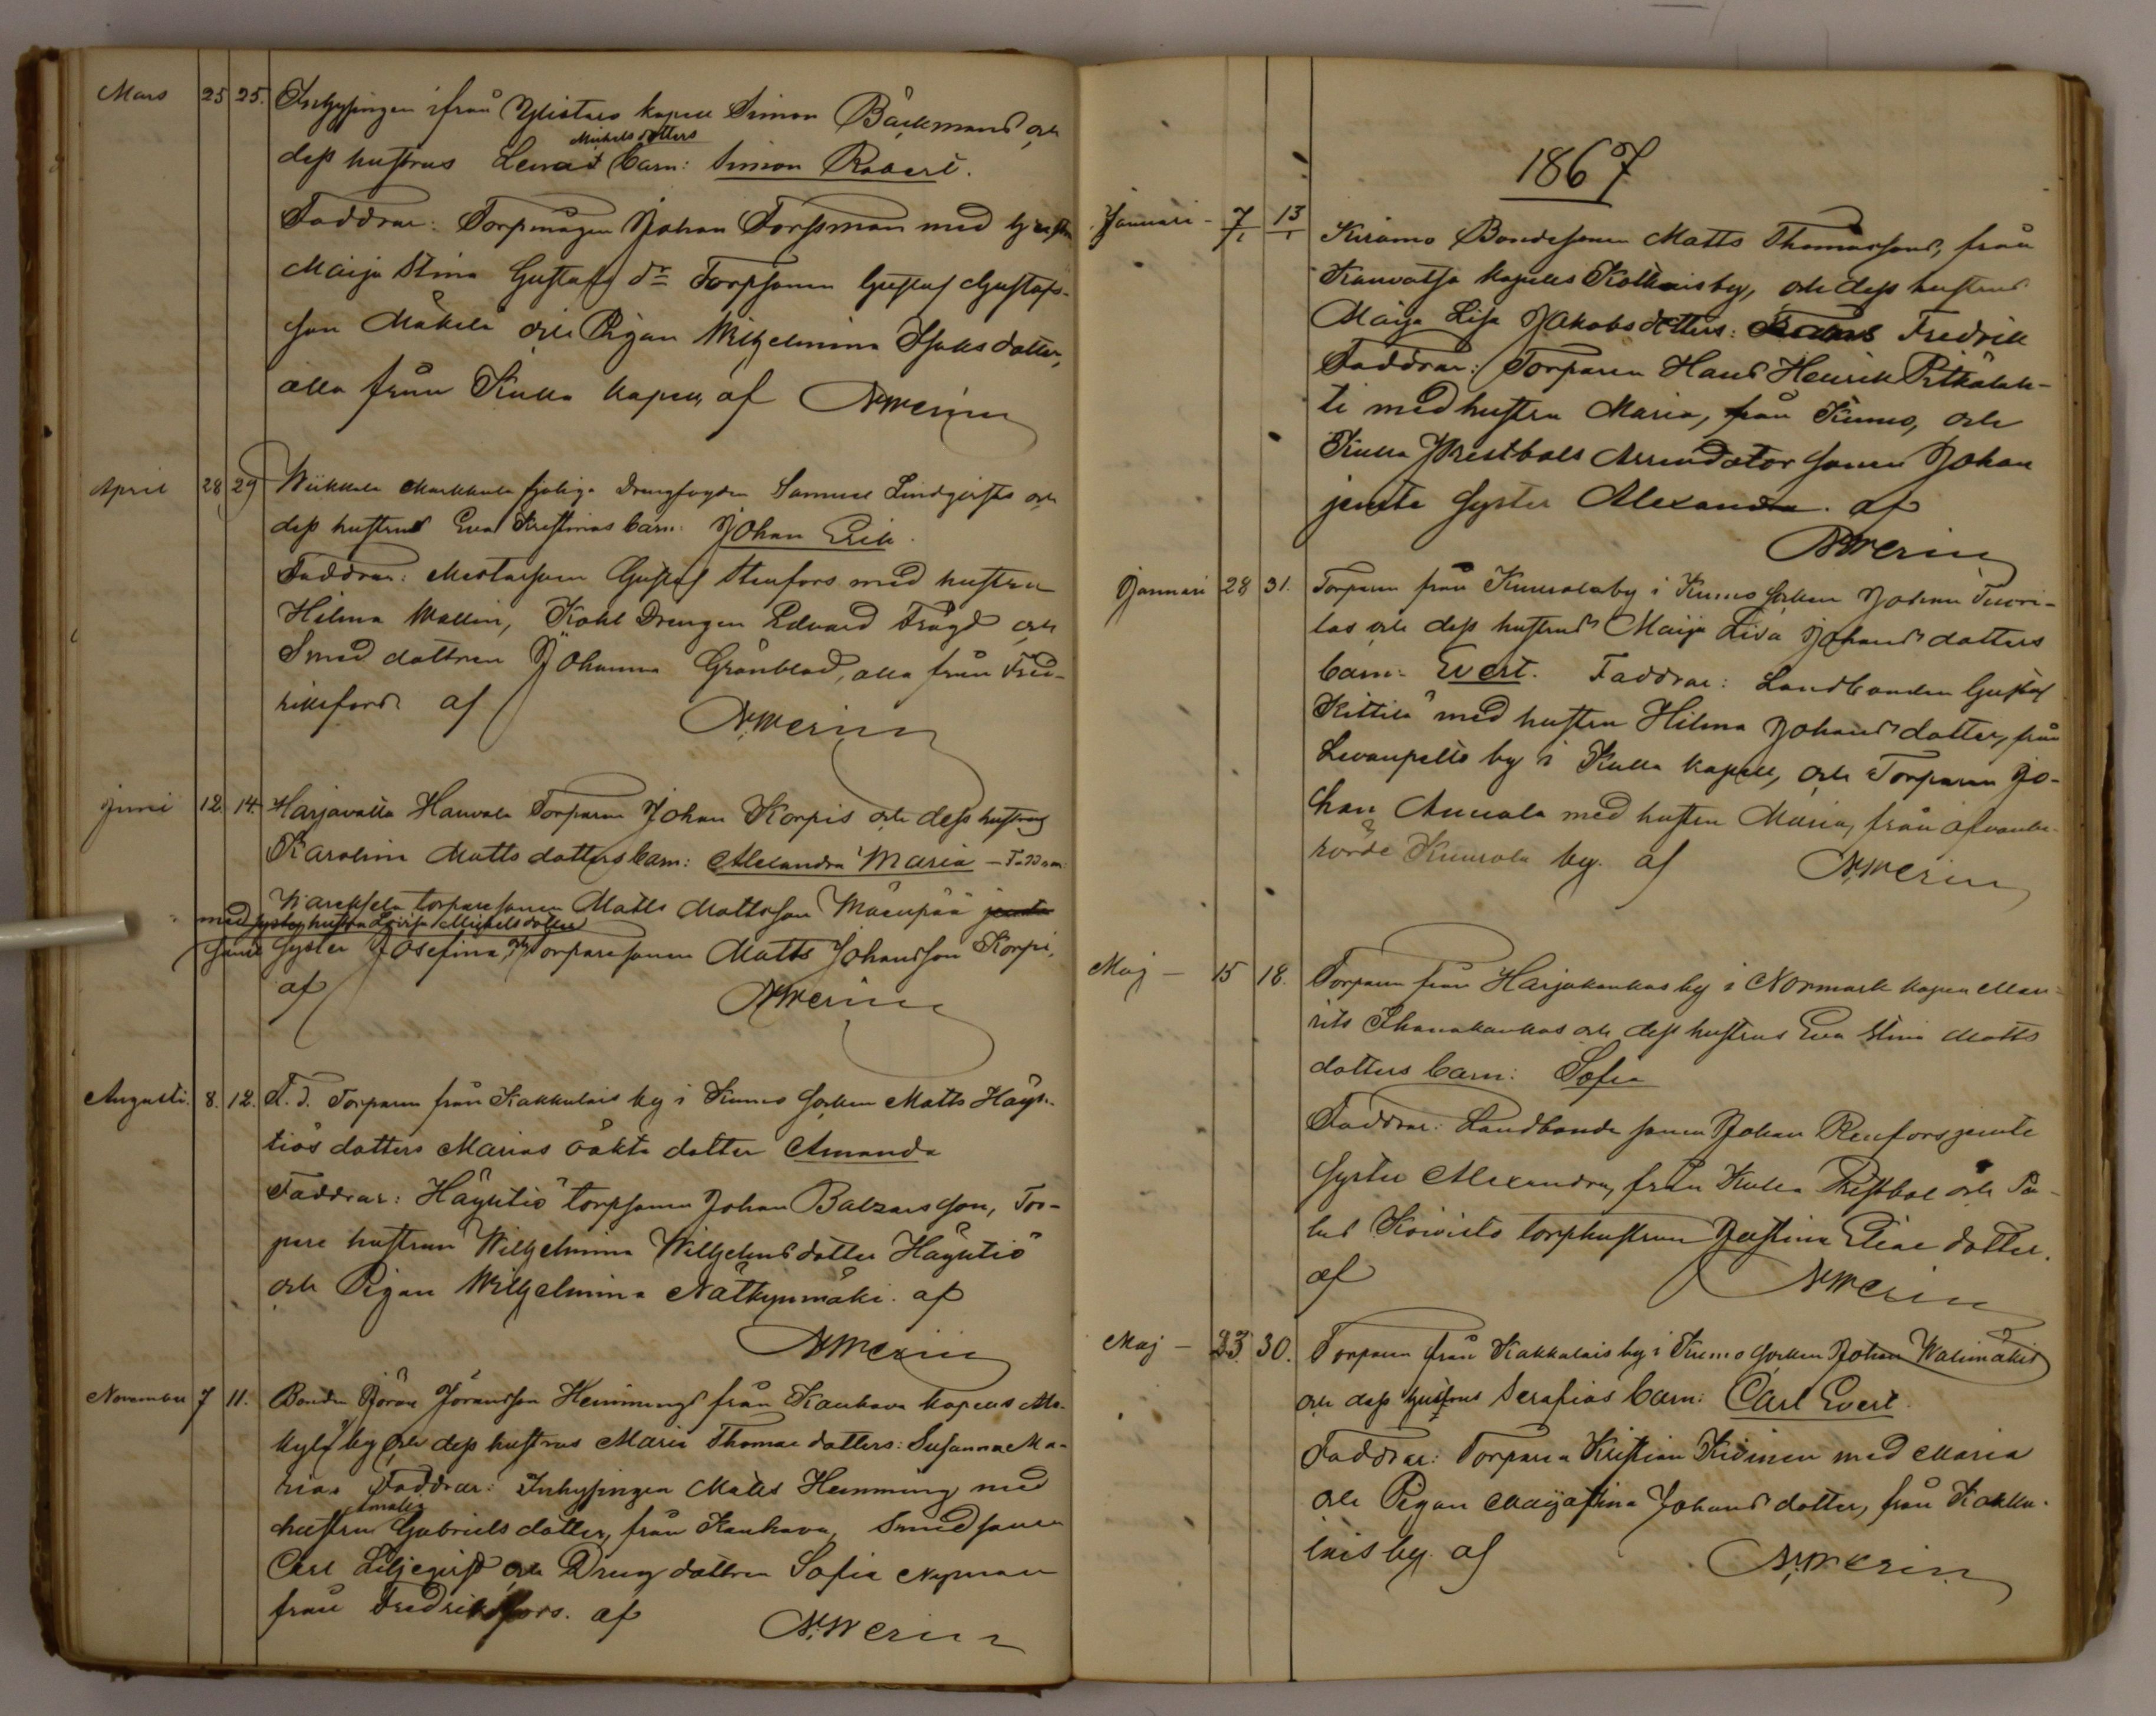 Mars 25 25. Inhysingen ifrån Ylistaro kapell Simon Bäckmans och
Mickelsdotters
dess hustrus Lenas barn: Simon Robert.
Faddrar: Torpmågen Johan Forssman med hustru
Maija Stina Gustafs dr Torpsonen Gustaf Gustafs-
son Mäkelä och Pigan Wilhelmina Isaksdotter,
alla från Kulla kapell, af N. Merin
April 28 29 Wiikkala Markkula Drengfogden Samuel Lindqvists och
dess hustrus Eva Kristinas barn: Johan Erik.
Faddrar: Mästarsonen Gustaf Stenfors med hustru
Hilma Wallin, Kohl Drengen Edvard Frägd och
Smed dottren Johanna Grönblad, alla från Fred-
riksfors af N. Merin
Juni 12. 14. Harjavalta Hanvola Torparen Johan Korpis och dess hustrus
Karolina Matts dotters barn: Alexandra Maria – Faddrar:
torparesonen Matts Mattsson Mäenpää jemte
med hustru Lovisa Mickelsdotter
syster Josefina, och Torparesonen Matts Johansson Korpi,
af N. Merin
Augusti. 8. 12. F. d. Torparen från Kakkulais by i Kumo socken Matts Häyh-
tiös dotters Marias oäkta dotter Amanda
Faddrar: Häyhtiö torpsonen Johan Balzarsson, Tor-
pare hustrun Wilhelmina Wilhelmsdotter Häyhtiö
och Pigan Wilhelmina Nätkynmäki. af
N. Merin
November 7 11. Bonden Jöran Jöransson Hemmings från Kauhava kapells
by och dess hustrus Maria Thomae dotters: Susanna Ma-
rias Faddrar: Inhysingen Matts Hemming med
Amalia
hustru Gabriels dotter, från Kauhava, Smedsonen
Carl Liljeqvist och Dreng dottren Sofia Nyman
från Fredriksfors. af N. Merin
1867
Januari – 7/1 13/1 Kiramo Bondesonen Matts Thomassons, från
Kauvatsa kapells by, och dess hustrus
Maija Lisa Jakobsdotters: Fredrik
Faddrar: Torparen Hans Henrik Pitkälah-
ti med hustru Maria, från Kumo, och
Kulla Prestbols Arrendator sonen Johan
jemte syster Alexandra. af
N. Merin
Januari 28 31. Torparen från Kuurola by i Kumo socken Johan Tuori-
las och dess hustrus Maija Lisa Johans dotters
barn: Evert. Faddrar: Landbonden Gustaf
Kittilä med hustru Hilma Johans dotter, från
Levanpelto by i Kulla kapell, och Torparen Jo-
han Annala med hustru Maria, från ofvanbe-
rörde Kuurola by. af N. Merin
Maj – 15 18. Torparen från Harjakankas by i Norrmark kapell Mau-
rits Ihanakankas och dess hustrus Eva Stina Matts
dotters barn: Sofia
Faddrar: Landbonde sonen Johan Renfors jemte
syster Alexandra, från Kulla Prestbol och Pa-
lus Koivisto torphustrun Justina Eliae dotter.
af N. Merin
Maj – 23. 30. Torparen från Kakkulais by i Kumo socken Johan Wälimäkis
och dess hustrus Serafias barn: Carl Evert.
Faddrar: Torparen Kristian Kivinen med Maria
och Pigan Maija Stina Johans dotter, från Kakku-
lais by. af N. Merin